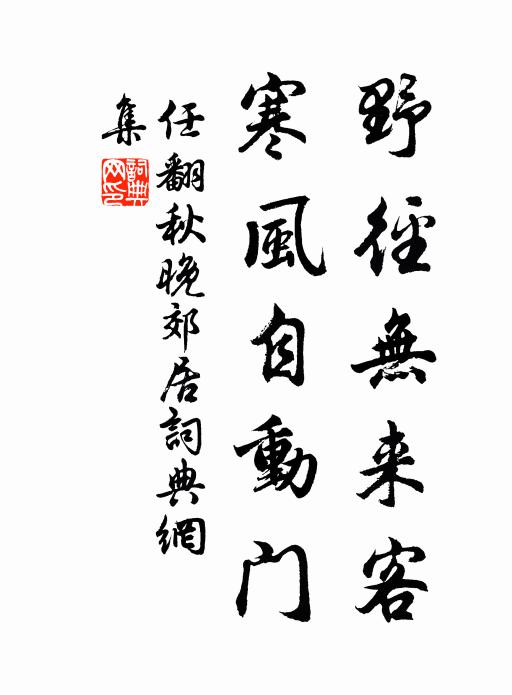 野徑無来客
寒風自動门
任翻秋晚郊居詞典網
集
詞典
网印